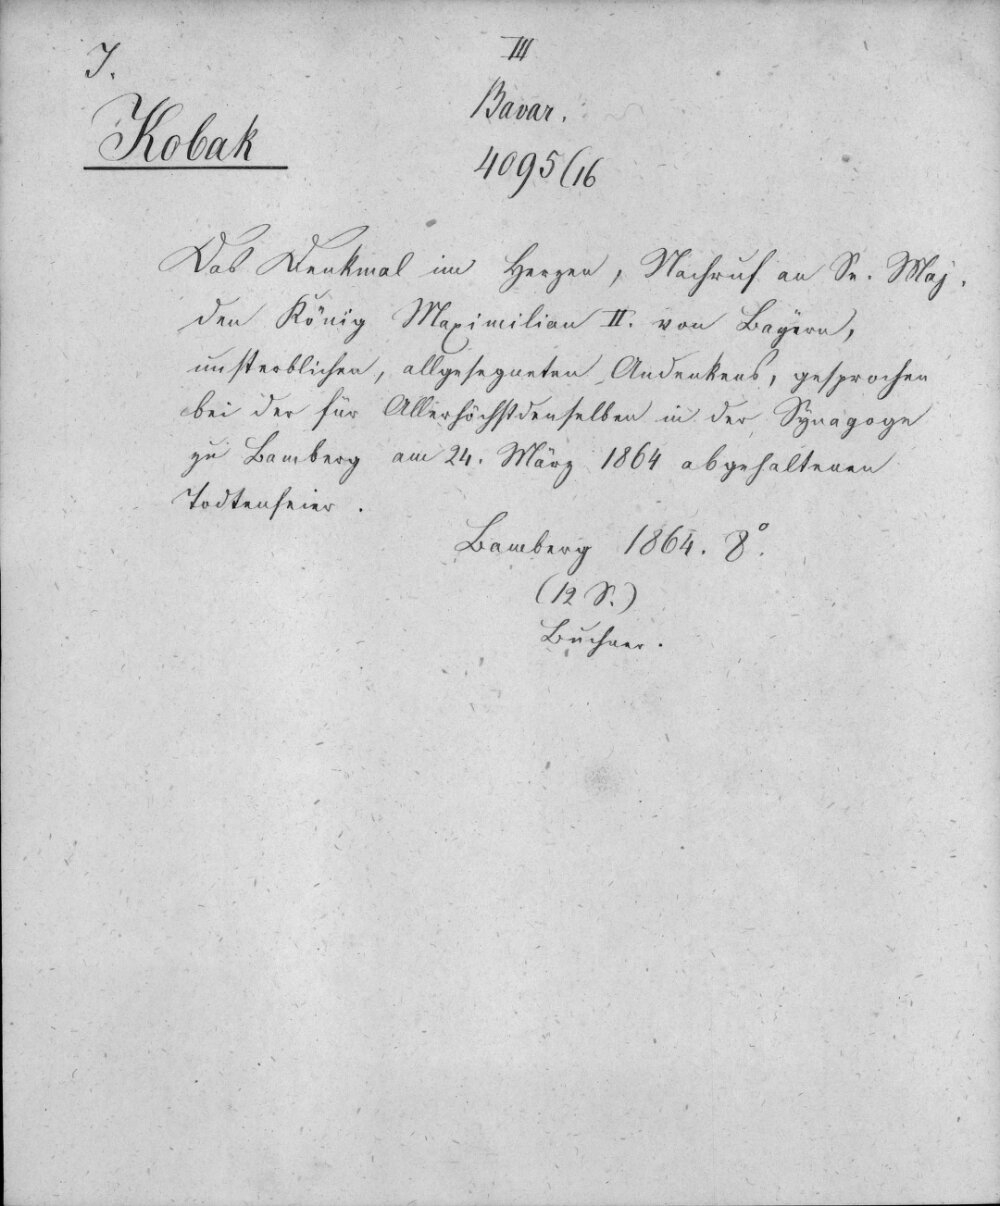 J.
Kobak
III
Bavar.
4095(16
Das Denkmal im Herzen, Nachruf an Se. Maj.
den König Maximilian II. von Bayern,
unsterblichen, allgesegneten Andenkens, gesprochen
bei der für Allerhöchstdenselben in der Synagoge
zu Bamberg am 24. März 1864 abgehaltenen
Todtenfeier.
Bamberg 1864. 8°.
(12 S.)
Buchner.